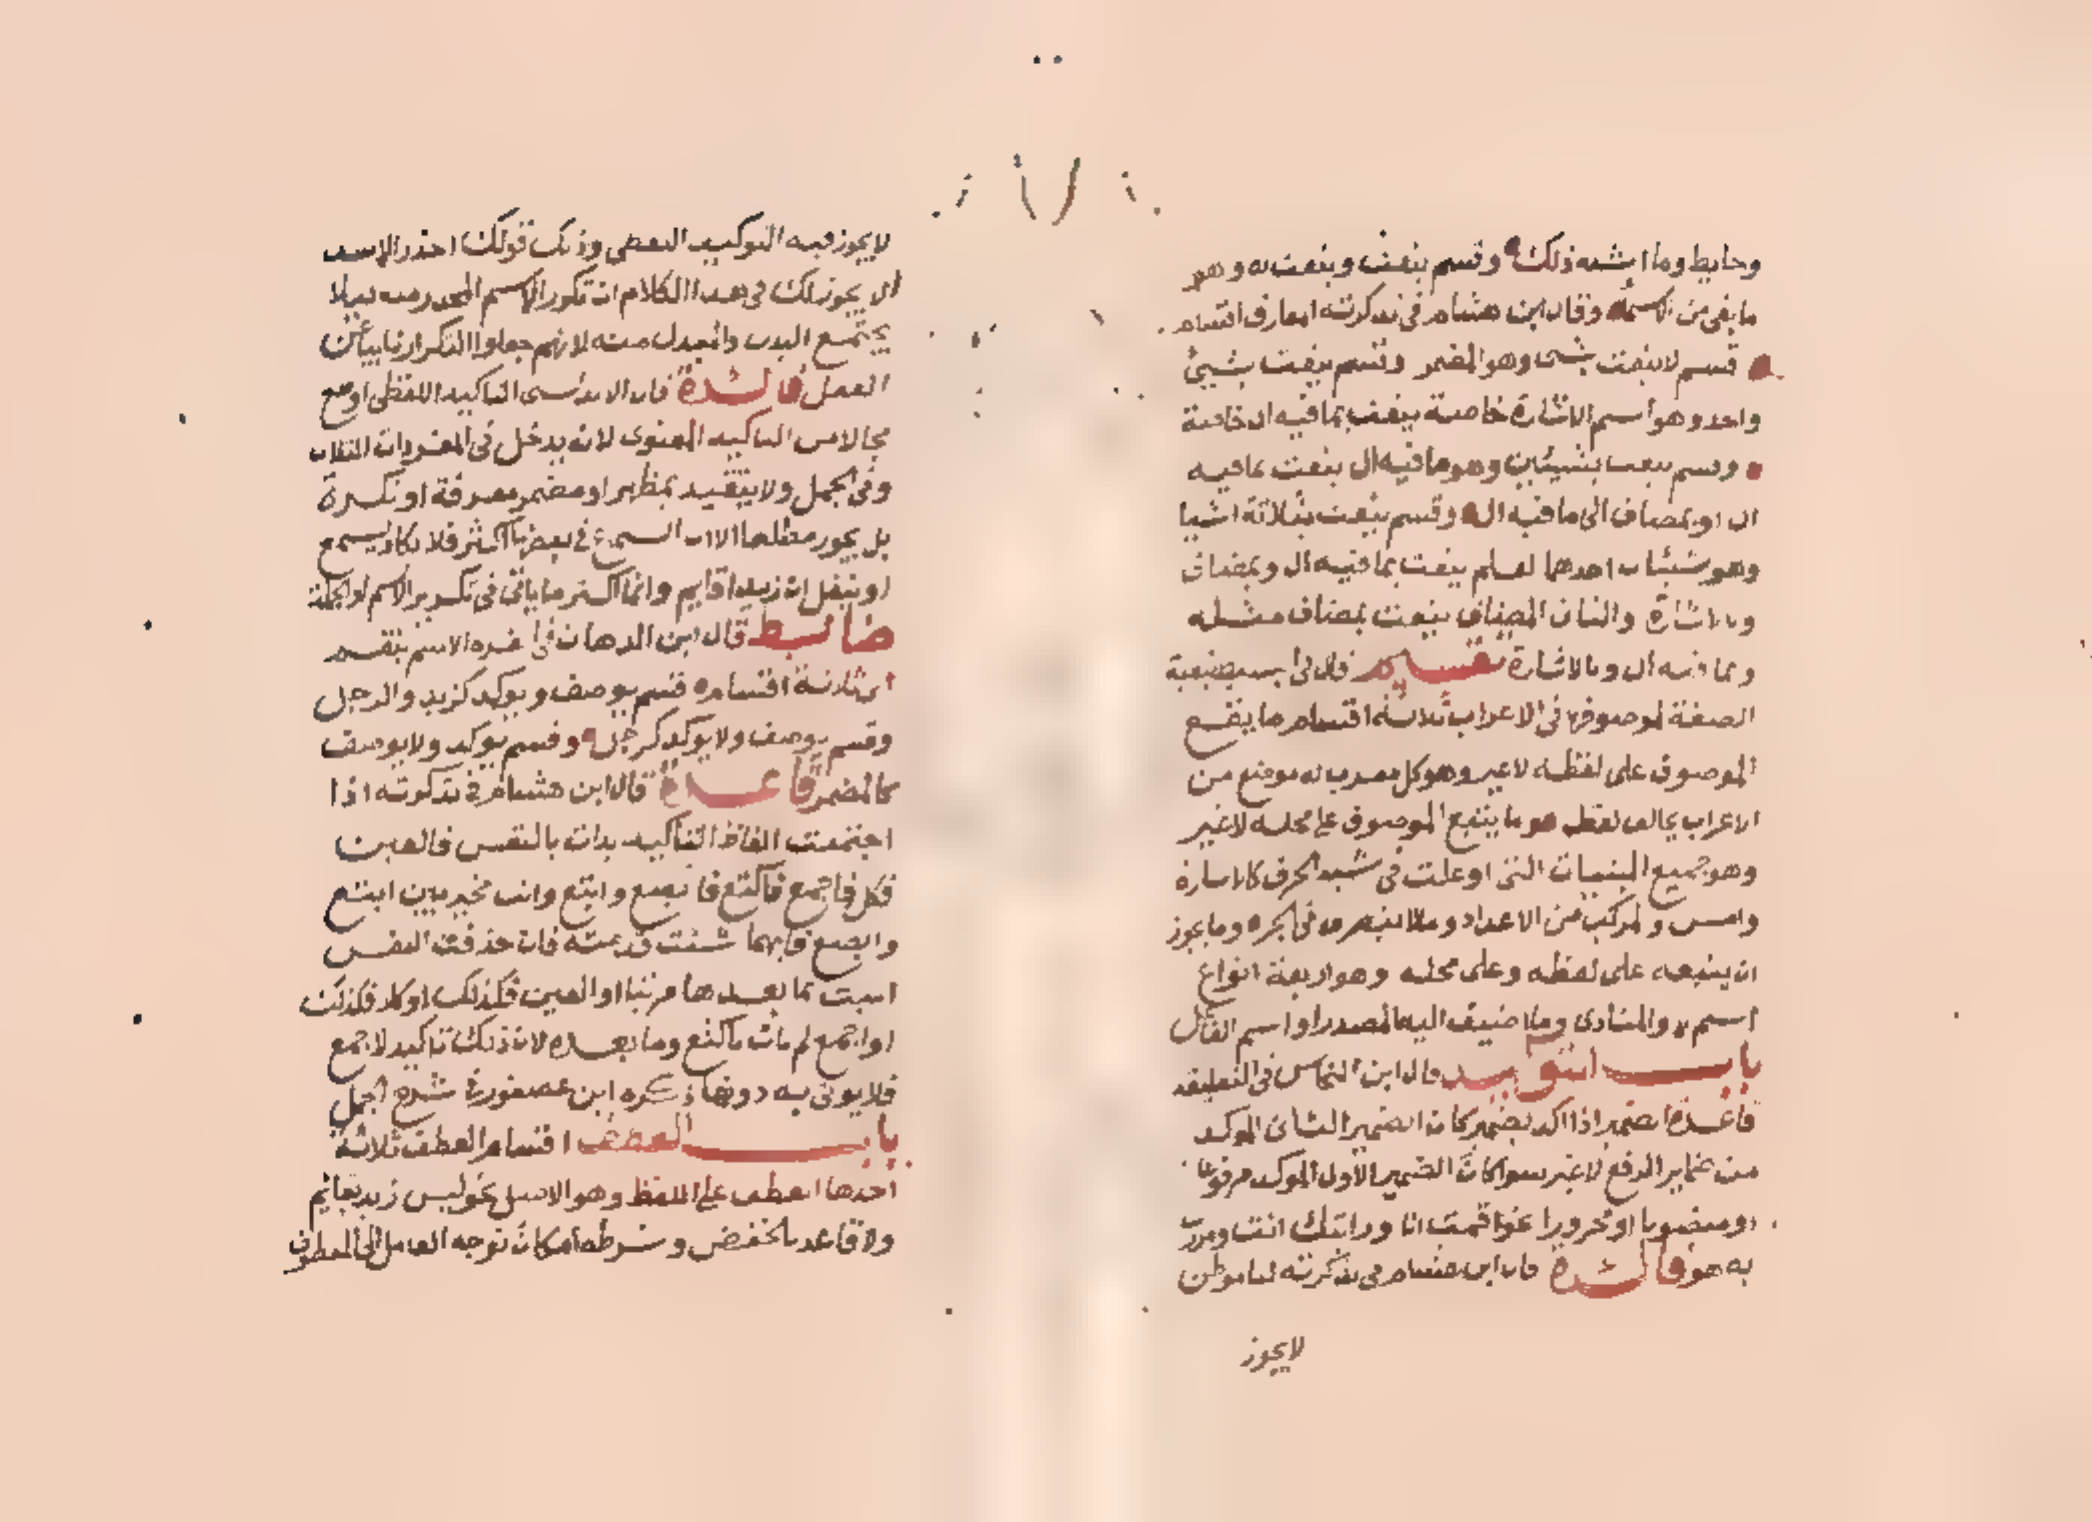 وحايط وما اشبه ذلك وقسم ينعت وينعت به وهو
ما بقى من الاسماء وقال ابن هشام في تذكرته المعارف اقسام
قسم لا ينعت بشى وهو المضمر وقسم ينعت بشيئ
واحد وهو اسم الاشارة خاصة ينعت بما فيه ال خاصة
وقسم ينعت بشيئين وهو ما فيه ال ينعت بما فيه
ال او بمضاف الى ما فيه ال وقسم ينعت بثلاثة اشيا
وهو شيئان احدهما العلم ينعت بما فيه ال وبمضاف
وبالاشارة والثانى المضاف ينعت بمضاف مثله
وبما فيه ال وبالاشارة تقسيم قال فى البسيط تبعية
الصفة لموصوفها فى الاعراب ثلاثة اقسام ما يتبع
الموصوف على لفظه لا غير وهو كل معرب له موضع من
الاعراب يخالف لفظه هو ما يتبع الموصوف على محله لا غير
وهو جميع المبنيات التى اوغلت فى شبه الحرف كالاشارة
وامس والمركب من الاعداد وما لا ينصرف فى الجر وما يجوز
ان يتبعه على لفظه وعلى محله وهو اربعة انواع
اسم لا والمنادى وما اضيف اليه المصدر او اسم الفاعل
باب التوكيد قال ابن النحاس فى التعليقة
قاعدة الضمير اذا اكد بضمير كان الضمير الثانى الموكد
من ضماير الرفع لا غير سوا كان الضمير الاول الموكد مرفوعا
او منصوبا او مجرورا نحو قمت انا ورايتك انت ومررت
به هو فائدة قال ابن هشام فى تذكرته لنا موطن
لا يجوز
لا يجوز فيه التوكيد اللفظى وذلك قولك احذر الاسد
لا يجوز لك فى هذا الكلام ان تكرر الاسم المحذر منه ليلا
يجتمع البدل والمبدل منه لانهم جعلوا التكرار نايبا عن
العمل فائدة قال الاندلسى التاكيد اللفظى اوسع
مجالا من التاكيد المعنوى لانه يدخل فى المفردات الثلاث
وفى الجمل ولا يتقيد بمظهر او مضمر معرفة او نكرة
بل يجوز مطلقا الا ان السماع فى بعضها اكثر فلا يكاد يسمع
او ينقل ان ان زيدا قايم وانما اكثر ما ياتى فى تكرير الاسم او الجملة
ضابط قال ابن الدهان فى الغرة الاسم ينقسم
الى ثلاثة اقسام قسم يوصف ويوكد كزيد والرجل
وقسم يوصف ولا يوكد كرجل وقسم يوكد ولا يوصف
كالمضمر قاعدة قال ابن هشام فى تذكرته اذا
اجتمعت الفاظ التاكيد بدات بالنفس فالعين
فكل فاجمع فاكتع فابصع وابتع وانت مخير بين ابتع
وابصع فايهما شئت قدمته فان حذفت النفس
اتيت بما بعدها مرتبا او العين فكذلك او كلا فكذلك
او اجمع لم تات باكتع وما بعده لان ذلك تاكيد لاجمع
فلا يوتى به دونها ذكره ابن عصفور فى شرح الجمل
باب العطف اقسام العطف ثلاثة
احدها العطف على اللفظ وهو الاصل نحو ليس زيد بقايم
ولا قاعد بالخفض وشرطه امكان توجه العامل الى المعطوف